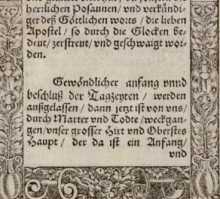 herrlichen Posaunen / vnd verkündi-
ger deß Göttlichen worts / die lieben
Apostel / so durch die Glocken be-
deut / zerstreut / vnd geschwaigt wor-
den.
Gewöndlicher anfang vnnd
beschluß der Tagzeyten / werden
außgelassen / dann jetzt ist von vns /
durch Marter vnd Todte / weckgan-
gen / vnser grosser Hirt vnd Oberstes
Haupt / der da ist ein Anfang /
vnd